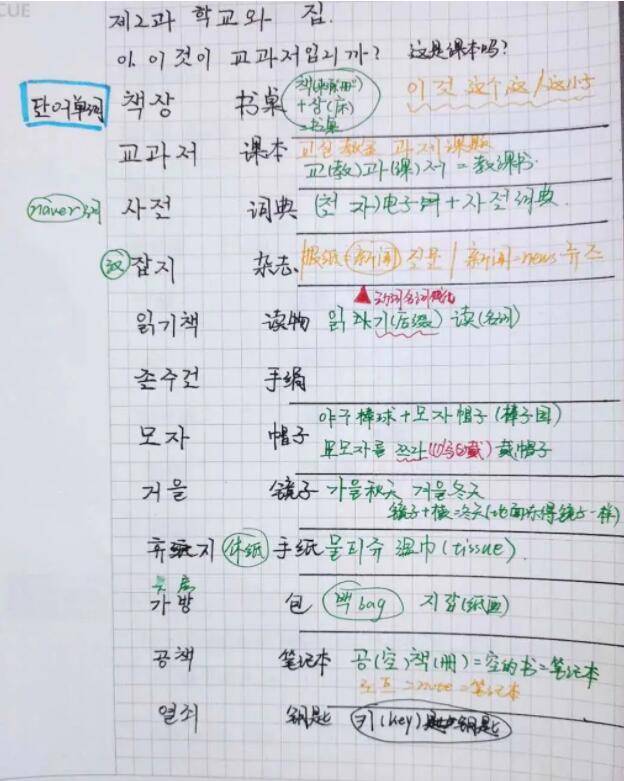 CUE
제2과 학교와 집.
01. 이것이 교과저입니까? 这是课本吗?
단어单词 책장 书桌 책(册) + 상(床) =书桌 이것 这个这/这小于
교과저 课本 교실 教室 과제 课题
교(教)과(课)저 = 教课书.
naver词 사전 词典 (전자)电子 + 사전词典.
汉 잡지 杂志. 报纸(新闻) 신문 / 新闻-news 뉴즈
动词名词化
읽기책 读物 읽 기(后缀) 读(名词)
손수건 手绢
모자 帽子 야구棒球+모자帽子(棒子国)
모자를 쓰다 戴帽子
거울 镜子 가을秋天 겨울冬天
镜子+横=冬天(地面冻得镜子一样)
휴지 休纸 手纸 물티슈 湿巾(tissue).
가방 包 백bag 지갑(纸匣)
공책 笔记本 공(空)책(册)=空的书=笔记本
노트=note=笔记本
열쇠 钥匙 키(key)是钥匙